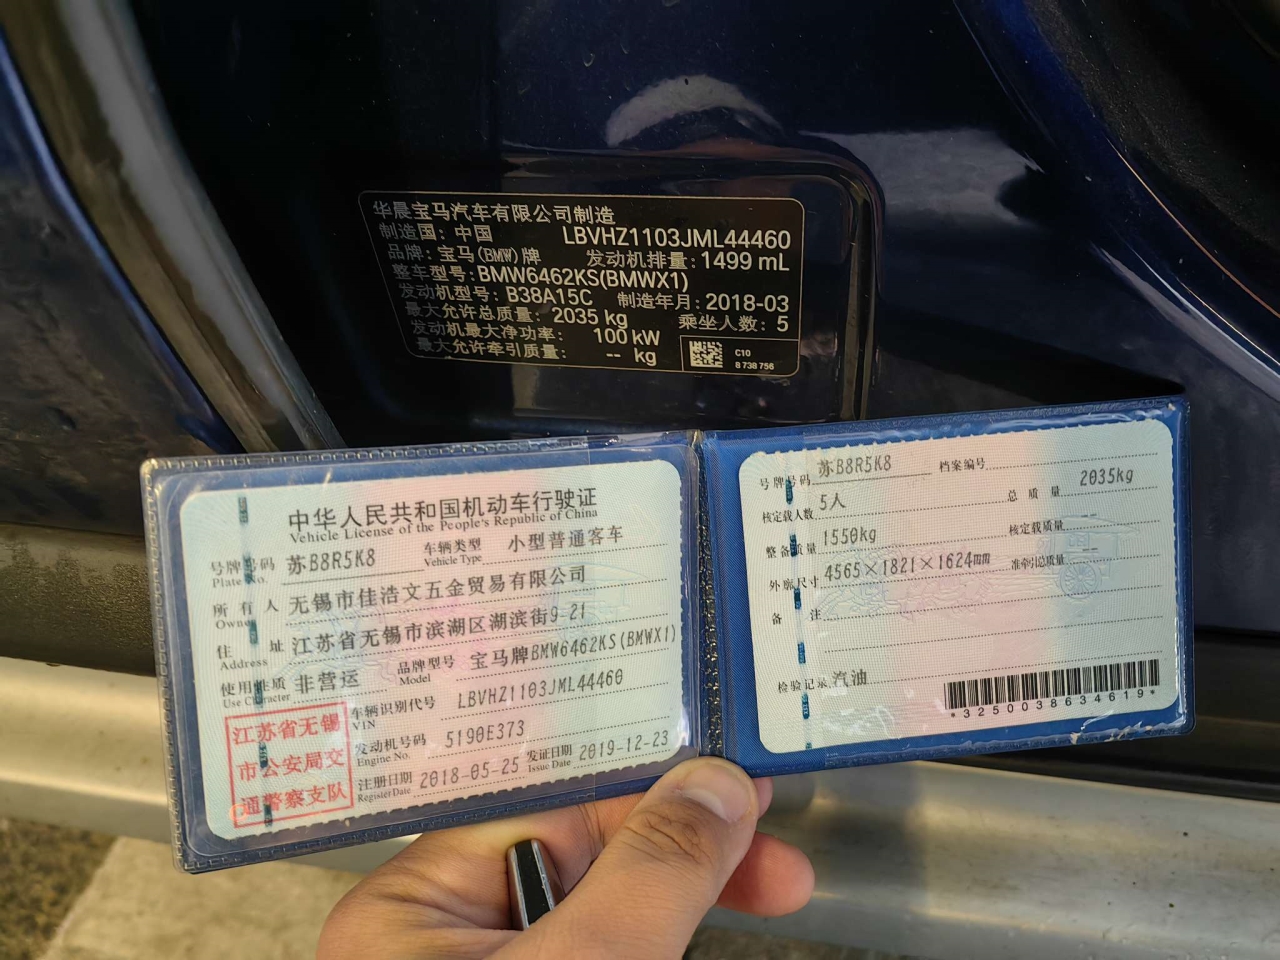 华晨宝马汽车有限公司制造
制造国：中国 LBVHZ1103JML44460
品牌：宝马(BMW)牌 发动机排量：1499 mL
整车型号：BMW6462KS(BMWX1)
发动机型号：B38A15C 制造年月：2018-03
最大允许总质量：2035 kg 乘坐人数：5
发动机最大净功率：100 kW
最大允许牵引质量：-- kg
C10
8 738 756
中华人民共和国机动车行驶证
Vehicle License of the People's Republic of China
号牌号码 苏B8R5K8 车辆类型 小型普通客车
Plate No. Vehicle Type
所有人 无锡市佳浩文五金贸易有限公司
Owner
住址 江苏省无锡市滨湖区湖滨街9-21
Address
使用性质 非营运 品牌型号 宝马牌BMW6462KS(BMWX1)
Use Character Model
车辆识别代号 LBVHZ1103JML44460
VIN
发动机号码 5190E373
Engine No.
注册日期 2018-05-25 发证日期 2019-12-23
Register Date Issue Date
江苏省无锡
市公安局交
通警察支队
号牌号码 苏B8R5K8 档案编号
核定载人数 5人 总质量 2035kg
整备质量 1550kg 核定载质量 --
外廓尺寸 4565×1821×1624mm 准牵引总质量 --
备注
检验记录 汽油
*3250038634619*